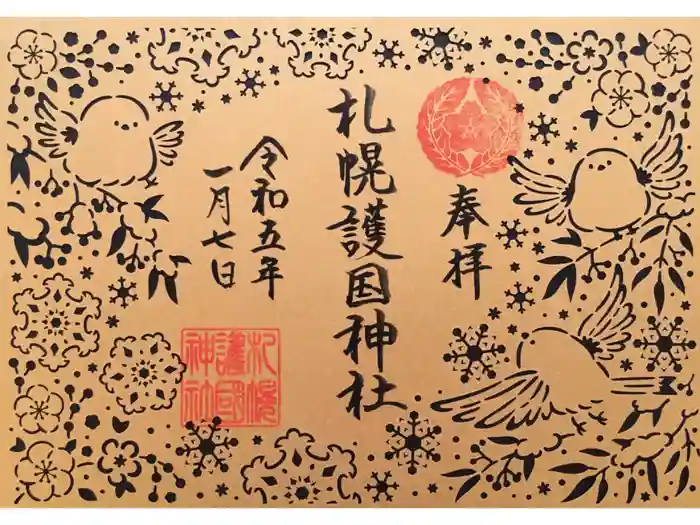 奉拝
札幌護国神社
令和五年
一月七日
札幌
護国
神社